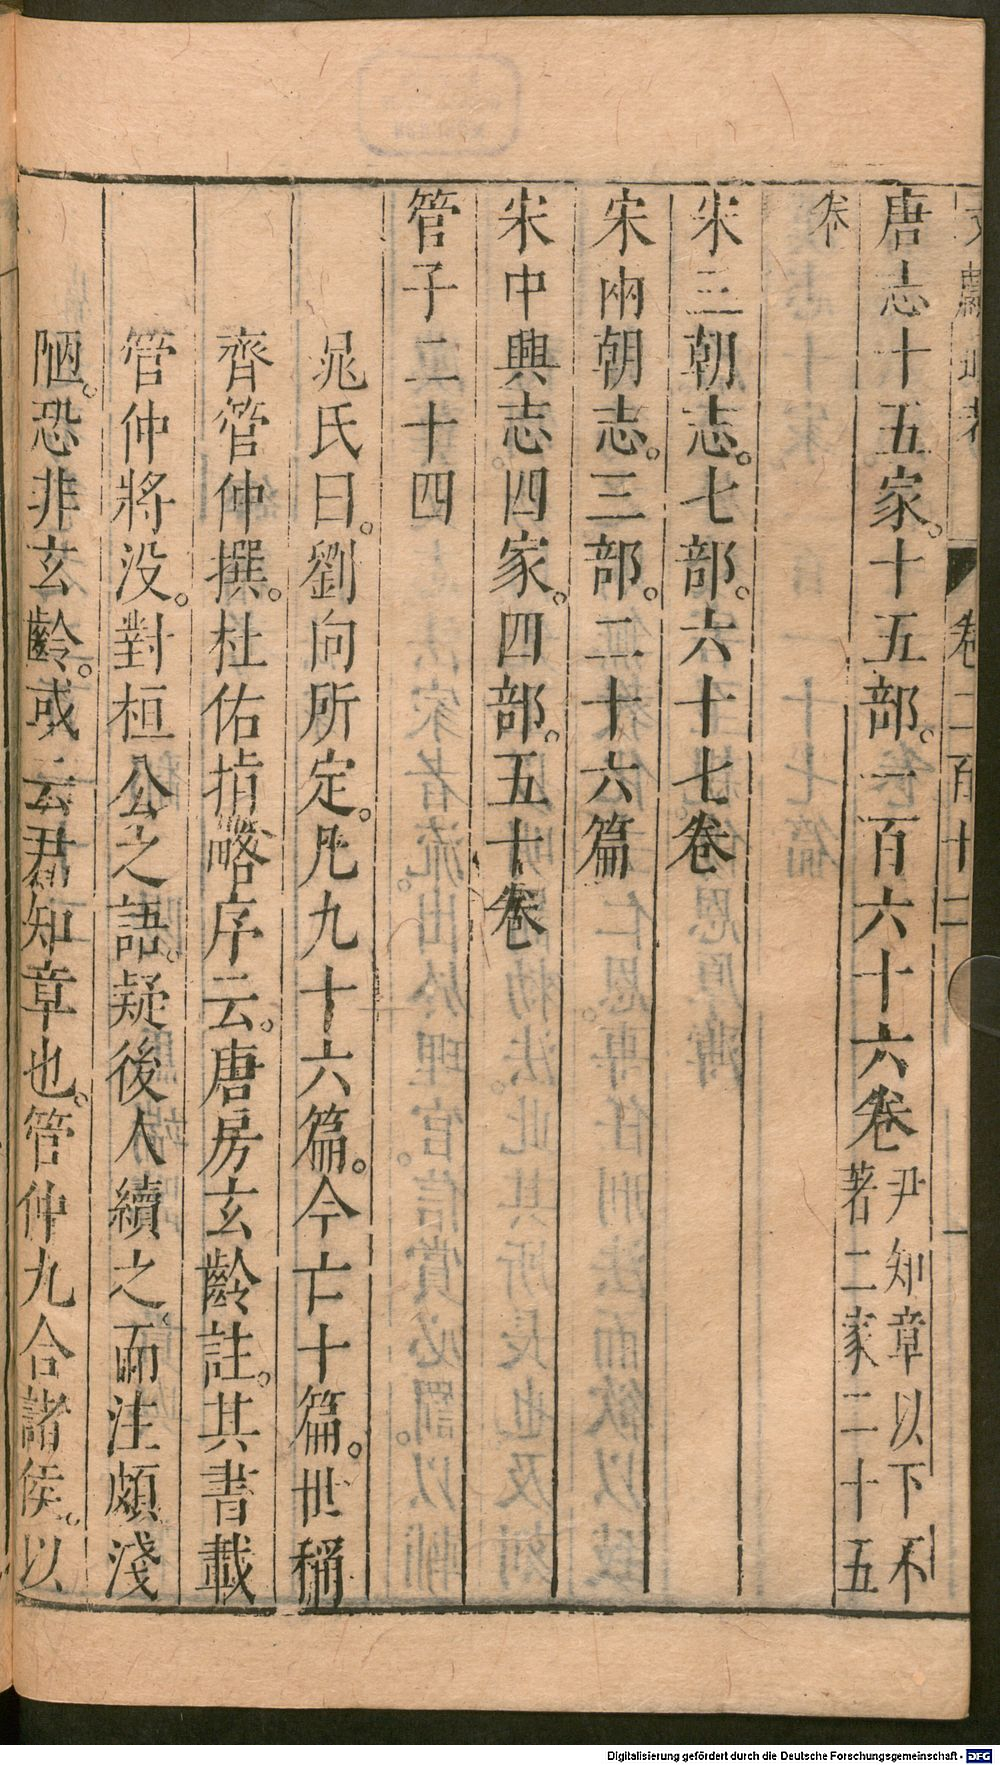 文獻通考　卷二百十二　一
唐志十五家。十五部。一百六十六卷尹知章以下不著二家二十五
卷
宋三朝志。七部。六十七卷
宋兩朝志。三部。二十六篇
宋中興志。四家。四部。五十卷
管子二十四
晁氏曰。劉向所定。凡九十六篇。今亡十篇。世稱
齊管仲撰。杜佑指略序云。唐房玄齡註。其書載
管仲將没。對桓公之語。疑後人續之、而注頗淺
陋。恐非玄齡。或云君知章也。管仲九合諸侯。以
Digitalisierung gefördert durch die Deutsche Forschungsgemeinschaft - DFG